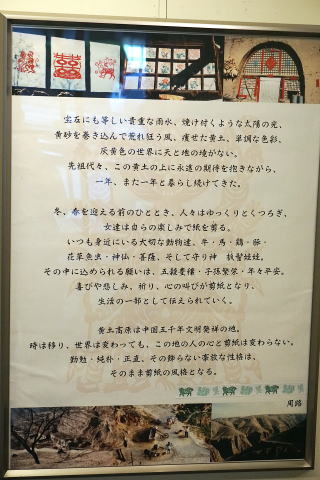 宝石にも等しい貴重な雨水、焼け付くような太陽の光、
黄砂を巻き込んで荒れ狂う風、痩せた黄土、単調な色彩、
灰黄色の世界に天と地の境がない。
先祖代々、この黄土の上に永遠の期待を抱きながら、
一年、また一年と暮らし続けてきた。
冬、春を迎える前のひととき、人々はゆっくりとくつろぎ、
女達は自らの楽しみで紙を剪る。
いつも身近にいる大切な動物達、牛・馬・鶏・豚・
花草魚虫・神仙・菩薩、そして守り神　抓髻娃娃、
その中に込められる願いは、五穀豊穣・子孫繁栄・年々平安。
喜びや悲しみ、祈り、心の叫びが剪紙となり、
生活の一部として伝えられていく。
黄土高原は中国五千年文明発祥の地。
時は移り、世界は変わっても、この地の人の心と剪紙は変わらない。
勤勉・純朴・正直、その飾らない豪放な性格は、
そのまま剪紙の風格となる。
周路